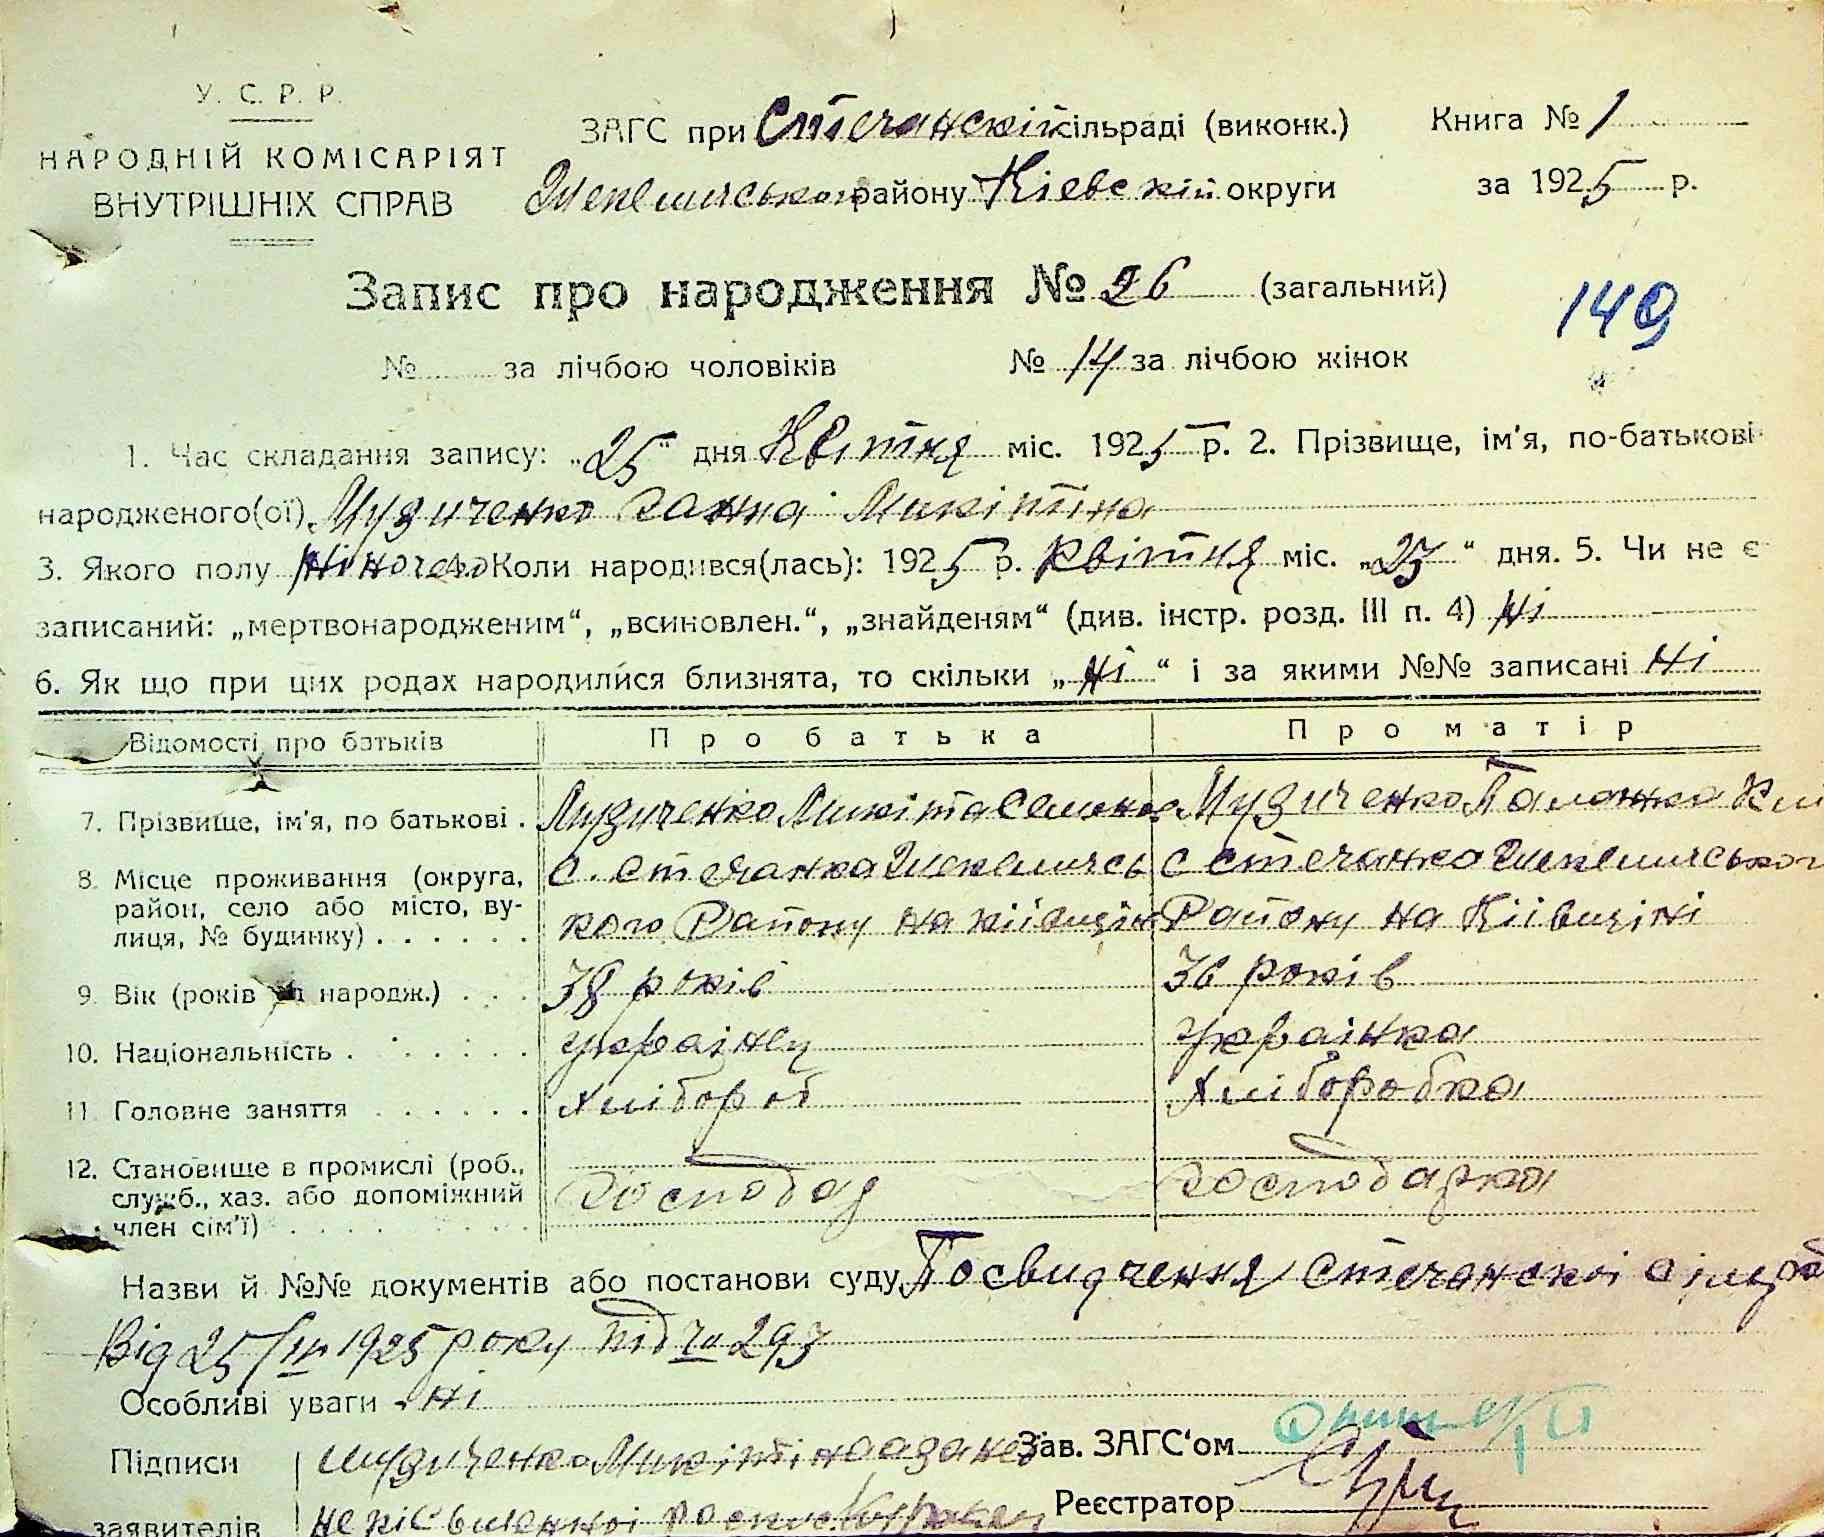 У. С. Р. Р.
НАРОДНІЙ КОМІСАРІЯТ
ВНУТРІШНІХ СПРАВ
ЗАГС при Стечанскій сільраді (виконк.)
району Кіевскій округи
Книга № 1
за 1925 р.
Запис про народження № 26 (загальний)
149
№ за лічбою чоловіків № 14 за лічбою жінок
1. Час складання запису: „25“ дня Квітня міс. 1925 р. 2. Прізвище, ім'я, по-батькові
народженого(ої) Музиченко Ганна Микітіна
3. Якого полу Жіночого Коли народився(лась): 1925 р. Квітня міс. „23“ дня. 5. Чи не є
записаний: „мертвонародженим“, „всиновлен.“, „знайденям“ (див. інстр. розд. III п. 4) Ні
6. Як що при цих родах народилися близнята, то скільки „Ні“ і за якими №№ записані Ні
Відомості про батьків Про батька Про матір
7. Прізвище, ім'я, по батькові . Музиченко Микіта Семенов Музиченко Паланка
8. Місце проживання (округа, район, село або місто, вулиця, № будинку) . . . . . .
С. Стечанка С Стечанка
кого Району на Кіівщін Району на Кіівщіні
9. Вік (років від народж.) . . . 38 років 36 років
10. Національність . . . . . . українец украінка
11. Головне заняття . . . . . . Хлібороб Хліборобка
12. Становище в промислі (роб., служб., хаз. або допоміжний член сім'ї) . . . . . Господар господарка
Назви й №№ документів або постанови суду Посвидчення Стечанскоі
Від 25/IV 1925 року під № 293
Особливі уваги - ні
Підписи Музиченко Микітіна Зав. ЗАГС'ом
заявителів Реєстратор